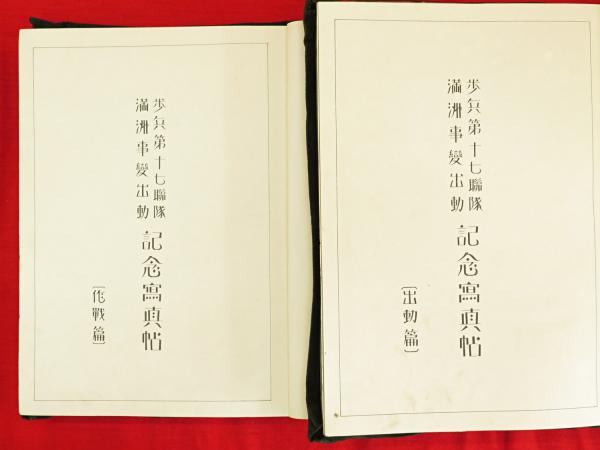 歩兵第十七聯隊
滿洲事變出動
記念寫眞帖
〔作戰篇〕
歩兵第十七聯隊
滿洲事變出動
記念寫眞帖
〔出動篇〕